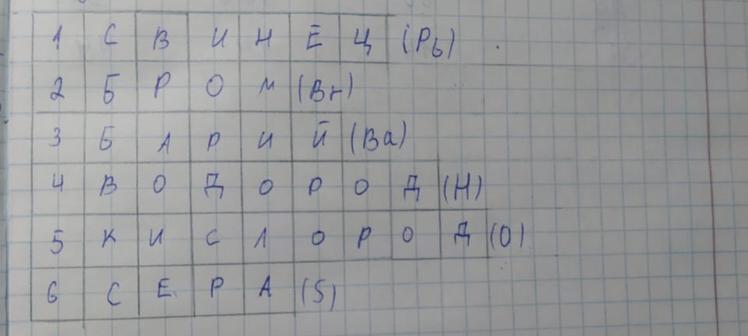 1 С В И Н Е Ц (Pb)
2 Б Р О М (Br)
3 Б А Р И Й (Ba)
4 В О Д О Р О Д (H)
5 К И С Л О Р О Д (O)
6 С Е Р А (S)